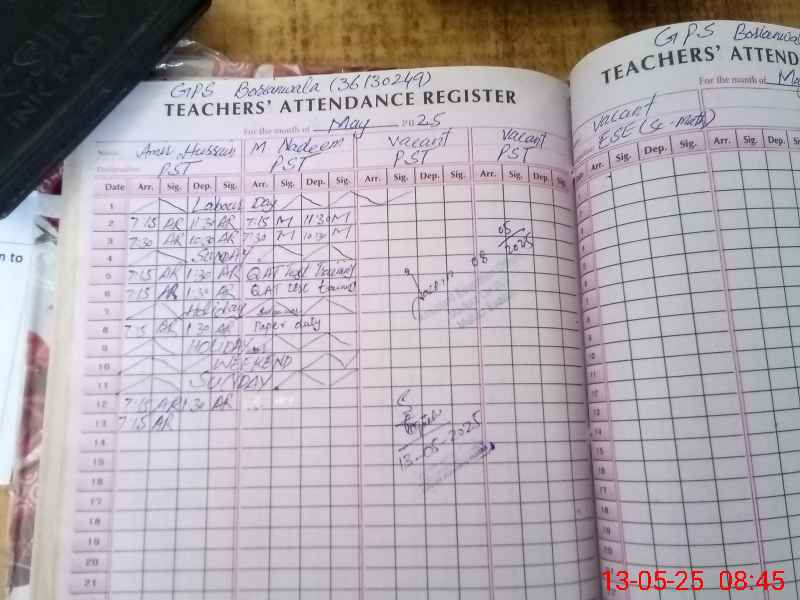 GPS Bosianwala (36130249)
TEACHERS' ATTENDANCE REGISTER
For the month of May 2025
Name Hussain M. Nadeem Vacant Vacant
Designation PST PST PST PST
Date Arr. Sig. Dep. Sig. Arr. Sig. Dep. Sig. Arr. Sig. Dep. Sig. Arr. Sig. Dep. Sig.
1 Labour Day
2 7:15 AR 11:30 AR 7:15 M 11:30 M
3 7:30 AR 10:30 AR 7:30 M 10:30 M
4 SUNDAY
5 7:15 AR 1:30 AR QAT test Training
6 7:15 AR 1:30 AR QAT test training
7 Holiday
8 7:15 AR 1:30 AR Paper duty
9 HOLIDAY
10 WEEKEND
11 SUNDAY
12 7:15 AR 1:30 AR
13 7:15 AR
14
15
16
17
18
19
20
21
08 05 2025
13-05-2025
GPS
TEACHERS' ATTEND
For the month of Ma
Vacant
ESE (Sc-Math)
Arr. Sig. Dep. Sig. Arr. Sig.
n to
13-05-25 08:45